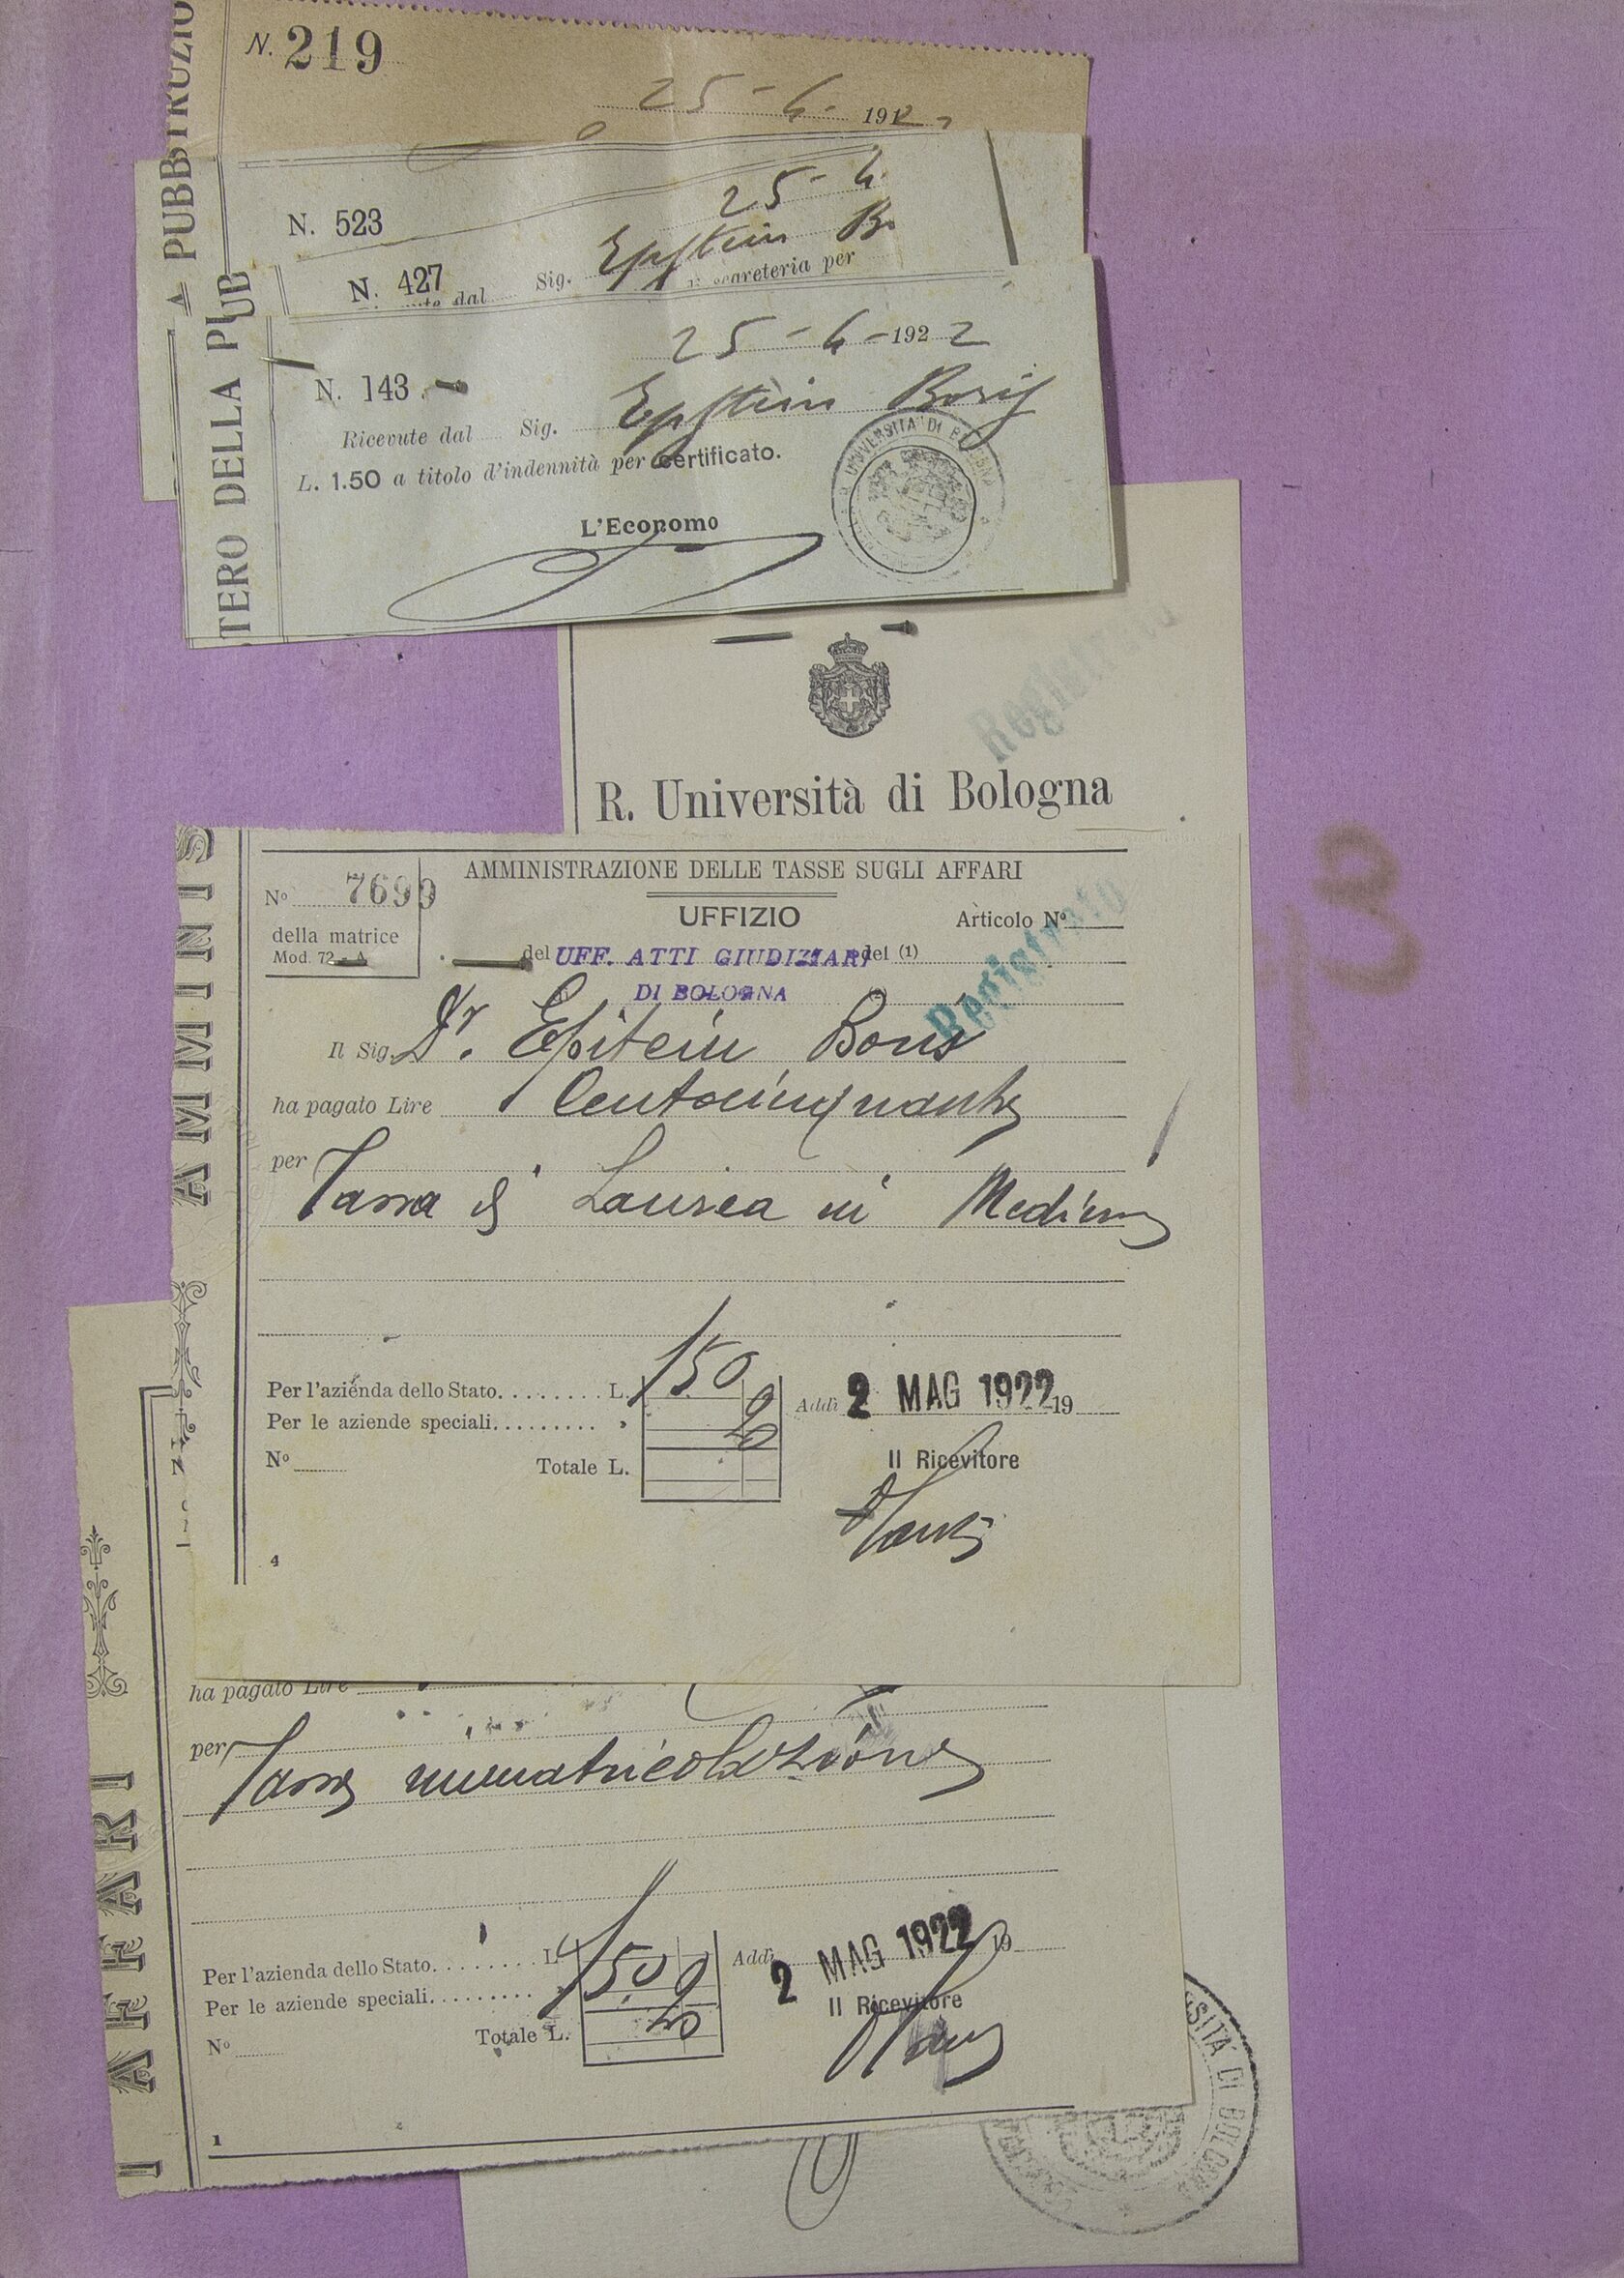 STRUZIO
N. 219
25-4- 192
A PUBB
N. 523
25-4
N. 427
Sig. Epstein Bo
segreteria per
TERO DELLA PUB
25-4-1922
N. 143.
Ricevute dal Sig. Epstein Boris
L. 1.50 a titolo d'indennità per certificato.
L'Economo
UNIVERSITA' DI BOLOGNA
Registrato
R. Università di Bologna
AMMINIS
AMMINISTRAZIONE DELLE TASSE SUGLI AFFARI
No 7699
della matrice
Mod. 72 - A
UFFIZIO
Articolo No
del UFF. ATTI GIUDIZIARI del (1)
DI BOLOGNA
Registrato
Il Sig. Dr. Epstein Boris
ha pagato Lire Centocinquanta
per
Tassa di Laurea in Medicina
Per l'azienda dello Stato......... L. 150
Per le aziende speciali......... » 20
No
Totale L.
Addì 2 MAG 1922 19
Il Ricevitore
4
I AFFARI
ha pagato Lire
per
Tassa immatricolazione
Per l'azienda dello Stato......... L. 150
Per le aziende speciali.........
No
Totale L. 20
Addì 2 MAG 1922 19
Il Ricevitore
1
SITA' DI BOLOGNA